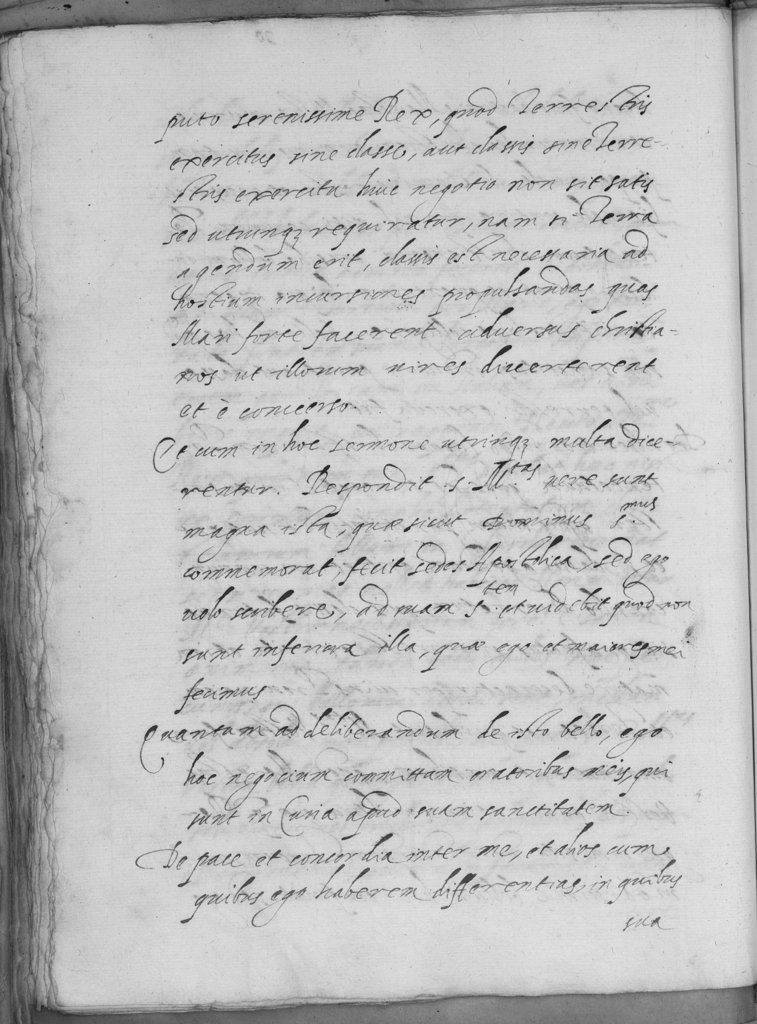 puto serenissime Rex, quod Terrestris
exercitus sine classe, aut classis sine Terre-
stris exercitu huic negotio non sit satis
sed utrunqȝ requiratur, nam si Terra
agendum erit, classis est necessaria ad
hostium incursiones propulsandas quas
Mari forte facerent adversus christia-
nos ut illorum vires diverterent
et è converso
Et cum in hoc sermone utrinqȝ multa dice-
rentur. Respondit s. M.tas vere sunt
magna ista, quæ sicut Dominus s.mus
commemorat, fecit sedes Apostolica, sed ego
volo scribere, ad suam s.tem et videbit quod non
sunt inferiora illa, quæ ego et maiores mei
fecimus
Quantum ad deliberandum de isto bello, ego
hoc negocium committam oratoribus meis, qui
sunt in Curia apud suam sanctitatem.
De pace et concordia inter me, et alios cum
quibus ego haberem differentias, in quibus
sua